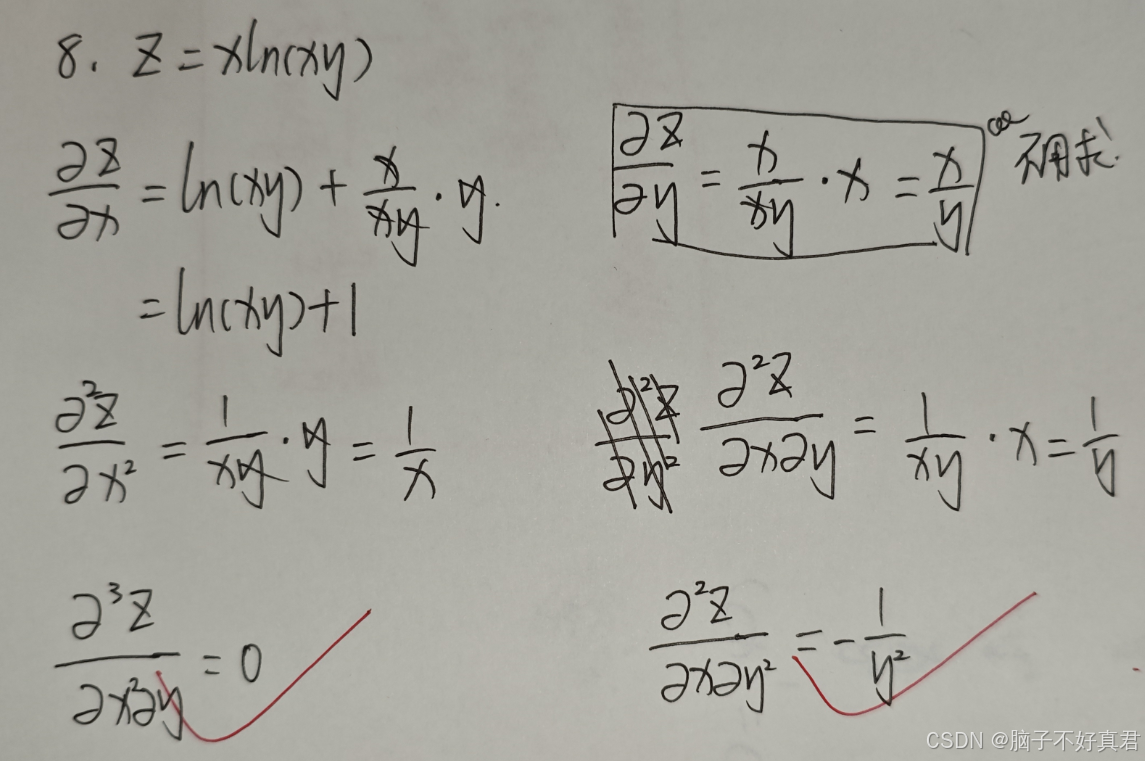 8. z = xln(xy)
∂z/∂x = ln(xy) + x/xy · y.
∂z/∂y = x/xy · x = x/y 不用求!
= ln(xy) + 1
∂²z/∂x² = 1/xy · y = 1/x
∂²z/∂y² ∂²z/∂x∂y = 1/xy · x = 1/y
∂³z/∂x²∂y = 0
∂²z/∂x∂y² = -1/y²
CSDN @脑子不好真君